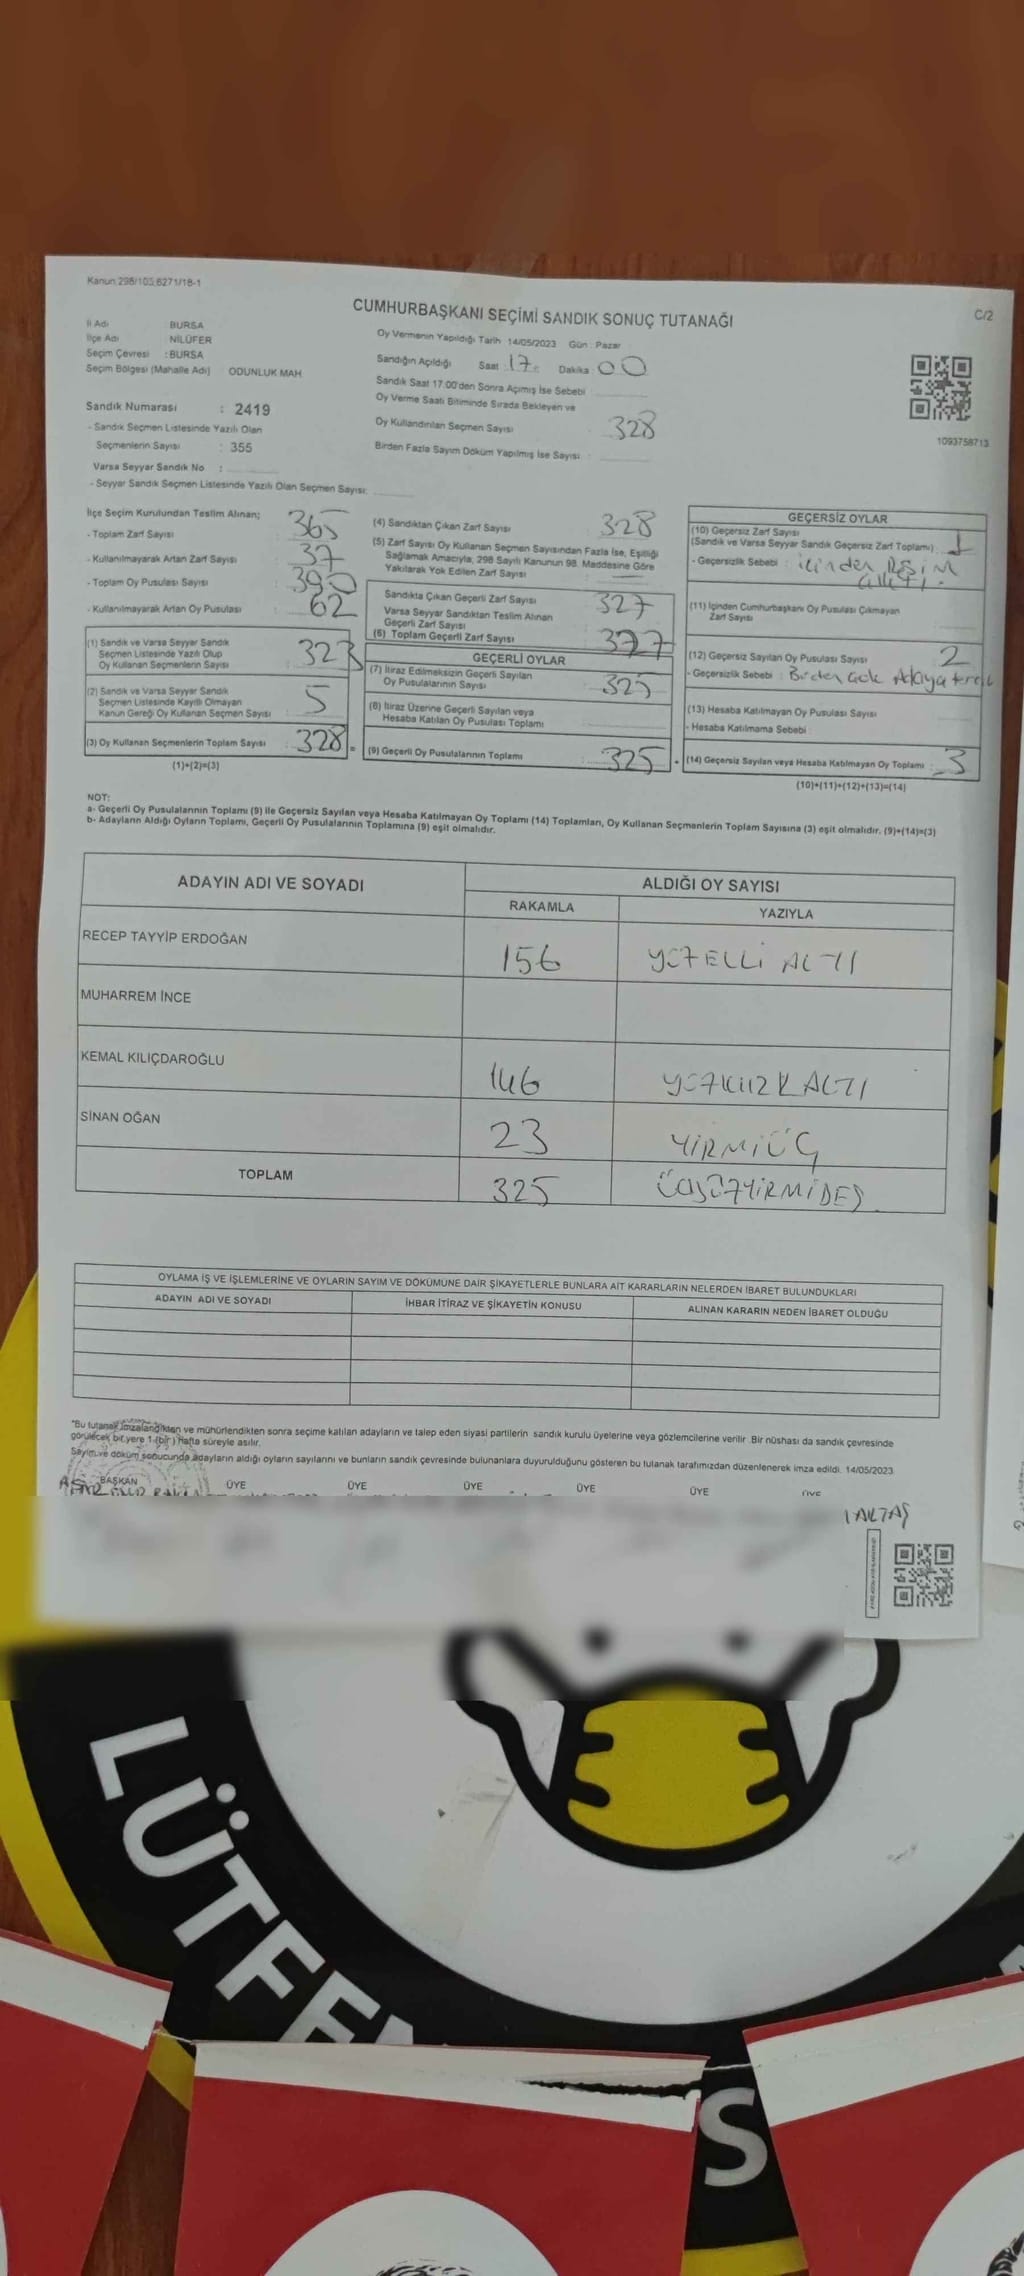 Kanun:298/103,6271/18-1
CUMHURBAŞKANI SEÇİMİ SANDIK SONUÇ TUTANAĞI
C/2
İl Adı : BURSA
İlçe Adı : NİLÜFER
Seçim Çevresi : BURSA
Seçim Bölgesi (Mahalle Adı) ODUNLUK MAH.
Sandık Numarası : 2419
- Sandık Seçmen Listesinde Yazılı Olan
Seçmenlerin Sayısı : 355
Varsa Seyyar Sandık No :
- Seyyar Sandık Seçmen Listesinde Yazılı Olan Seçmen Sayısı:
Oy Vermenin Yapıldığı Tarih 14/05/2023 Gün : Pazar
Sandığın Açıldığı Saat : 17 : Dakika : 00
Sandık Saat 17.00'den Sonra Açımış İse Sebebi
Oy Verme Saati Bitiminde Sırada Bekleyen ve
Oy Kullandırılan Seçmen Sayısı : 328
Birden Fazla Sayım Döküm Yapılmış İse Sayısı :
1093758713
İlçe Seçim Kurulundan Teslim Alınan;
- Toplam Zarf Sayısı : 365
- Kullanılmayarak Artan Zarf Sayısı : 37
- Toplam Oy Pusulası Sayısı : 390
- Kullanılmayarak Artan Oy Pusulası : 62
(1) Sandık ve Varsa Seyyar Sandık
Seçmen Listesinde Yazılı Olup
Oy Kullanan Seçmenlerin Sayısı : 323
(2) Sandık ve Varsa Seyyar Sandık
Seçmen Listesinde Kayıtlı Olmayan
Kanun Gereği Oy Kullanan Seçmen Sayısı : 5
(3) Oy Kullanan Seçmenlerin Toplam Sayısı : 328 =
(1)+(2)=(3)
(4) Sandıktan Çıkan Zarf Sayısı 328
(5) Zarf Sayısı Oy Kullanan Seçmen Sayısından Fazla İse, Eşitliği
Sağlamak Amacıyla, 298 Sayılı Kanunun 98. Maddesine Göre
Yakılarak Yok Edilen Zarf Sayısı :
Sandıkta Çıkan Geçerli Zarf Sayısı : 327
Varsa Seyyar Sandıktan Teslim Alınan
Geçerli Zarf Sayısı
(6) Toplam Geçerli Zarf Sayısı 327
GEÇERLİ OYLAR
(7) İtiraz Edilmeksizin Geçerli Sayılan
Oy Pusulalarının Sayısı : 325
(8) İtiraz Üzerine Geçerli Sayılan veya
Hesaba Katılan Oy Pusulası Toplamı :
(9) Geçerli Oy Pusulalarının Toplamı : 325 +
GEÇERSİZ OYLAR
(10) Geçersiz Zarf Sayısı
(Sandık ve Varsa Seyyar Sandık Geçersiz Zarf Toplamı) : 1
- Geçersizlik Sebebi : içinden Resim
(11) İçinden Cumhurbaşkanı Oy Pusulası Çıkmayan
Zarf Sayısı
(12) Geçersiz Sayılan Oy Pusulası Sayısı : 2
- Geçersizlik Sebebi : Birden Çok Adaya tercih
(13) Hesaba Katılmayan Oy Pusulası Sayısı :
- Hesaba Katılmama Sebebi :
(14) Geçersiz Sayılan veya Hesaba Katılmayan Oy Toplamı : 3
(10)+(11)+(12)+(13)=(14)
NOT:
a- Geçerli Oy Pusulalarının Toplamı (9) ile Geçersiz Sayılan veya Hesaba Katılmayan Oy Toplamı (14) Toplamları, Oy Kullanan Seçmenlerin Toplam Sayısına (3) eşit olmalıdır. (9)+(14)=(3)
b- Adayların Aldığı Oyların Toplamı, Geçerli Oy Pusulalarının Toplamına (9) eşit olmalıdır.
ADAYIN ADI VE SOYADI ALDIĞI OY SAYISI
RAKAMLA YAZIYLA
RECEP TAYYİP ERDOĞAN 156 YÜZELLİ ALTI
MUHARREM İNCE
KEMAL KILIÇDAROĞLU 146 YÜZKIRK ALTI
SİNAN OĞAN 23 YİRMİÜÇ
TOPLAM 325 ÜÇYÜZYİRMİBEŞ
OYLAMA İŞ VE İŞLEMLERİNE VE OYLARIN SAYIM VE DÖKÜMÜNE DAİR ŞİKAYETLERLE BUNLARA AİT KARARLARIN NELERDEN İBARET BULUNDUKLARI
ADAYIN ADI VE SOYADI İHBAR İTİRAZ VE ŞİKAYETİN KONUSU ALINAN KARARIN NEDEN İBARET OLDUĞU
"Bu tutanak imzalandıktan ve mühürlendikten sonra seçime katılan adayların ve talep eden siyasi partilerin sandık kurulu üyelerine veya gözlemcilerine verilir. Bir nüshası da sandık çevresinde
görülecek bir yere 1 (bir) hafta süreyle asılır.
Sayım ve döküm sonucunda adayların aldığı oyların sayılarını ve bunların sandık çevresinde bulunanlara duyurulduğunu gösteren bu tutanak tarafımızdan düzenlenerek imza edildi. 14/05/2023
BAŞKAN ÜYE ÜYE ÜYE ÜYE ÜYE ÜYE
AKTAŞ
LÜTFEN
S